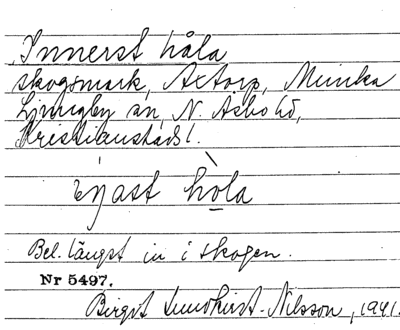 Innerst håla
skogsmark, Axtorp, Munka
Ljungby sn, N. Åsbo hd,
Kristianstads l.
ɪ̀ɲast hò̱la
Bel. längst in i skogen.
Nr 5497.
Birgit Lundkvist-Nilsson, 1941.